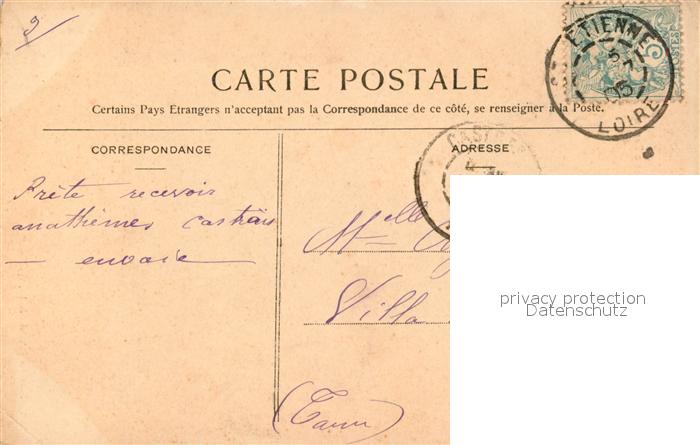 ST ETIENNE
5
7
05
LOIRE
CARTE POSTALE
Certains Pays Etrangers n'acceptant pas la Correspondance de ce côté, se renseigner à la Poste.
CORRESPONDANCE
ADRESSE
CASTRES
Prête recevoir
anathèmes castrais
— envoie —
Melle
Villa
(Tarn)
privacy protection
Datenschutz